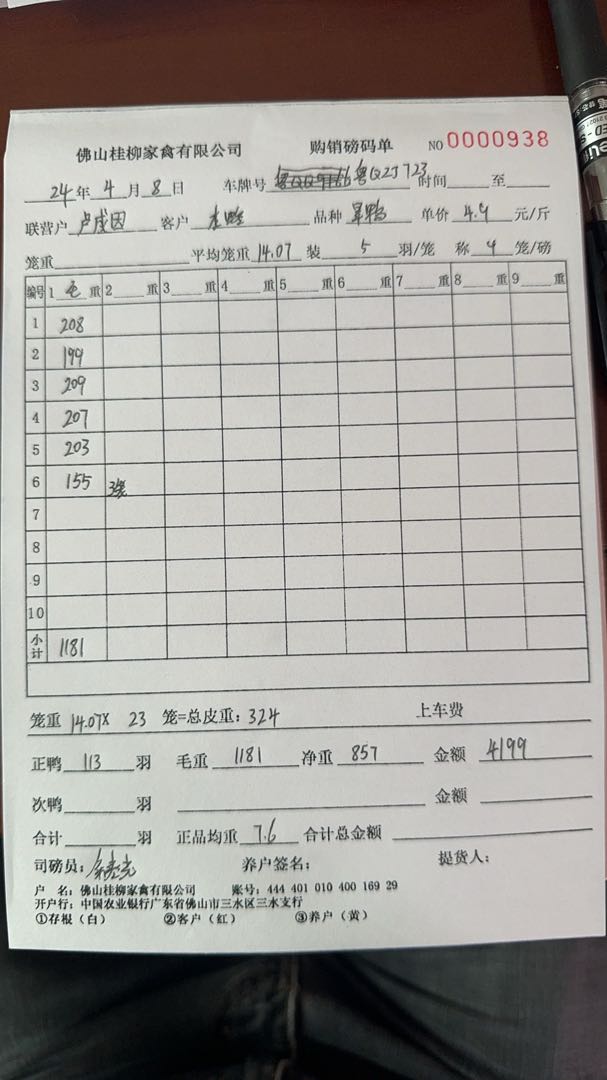 佛山桂柳家禽有限公司 购销磅码单 NO 0000938
24年 4月 8日 车牌号 粤Q2J723 时间 至
联营户 客户 品种 单价 4.9 元/斤
笼重 平均笼重 14.07 装 5 羽/笼 称 4 笼/磅
编号 1 毛 重 2 重 3 重 4 重 5 重 6 重 7 重 8 重 9 重
1 208
2 199
3 209
4 207
5 203
6 155 3笼
7
8
9
10
小计 1181
笼重 14.07X 23 笼=总皮重:324 上车费
正鸭 113 羽 毛重 1181 净重 857 金额 4199
次鸭 羽 金额
合计 羽 正品均重 7.6 合计总金额
司磅员: 养户签名: 提货人:
户 名:佛山桂柳家禽有限公司 账号:444 401 010 400 169 29
开户行:中国农业银行广东省佛山市三水区三水支行
①存根(白) ②客户(红) ③养户(黄)